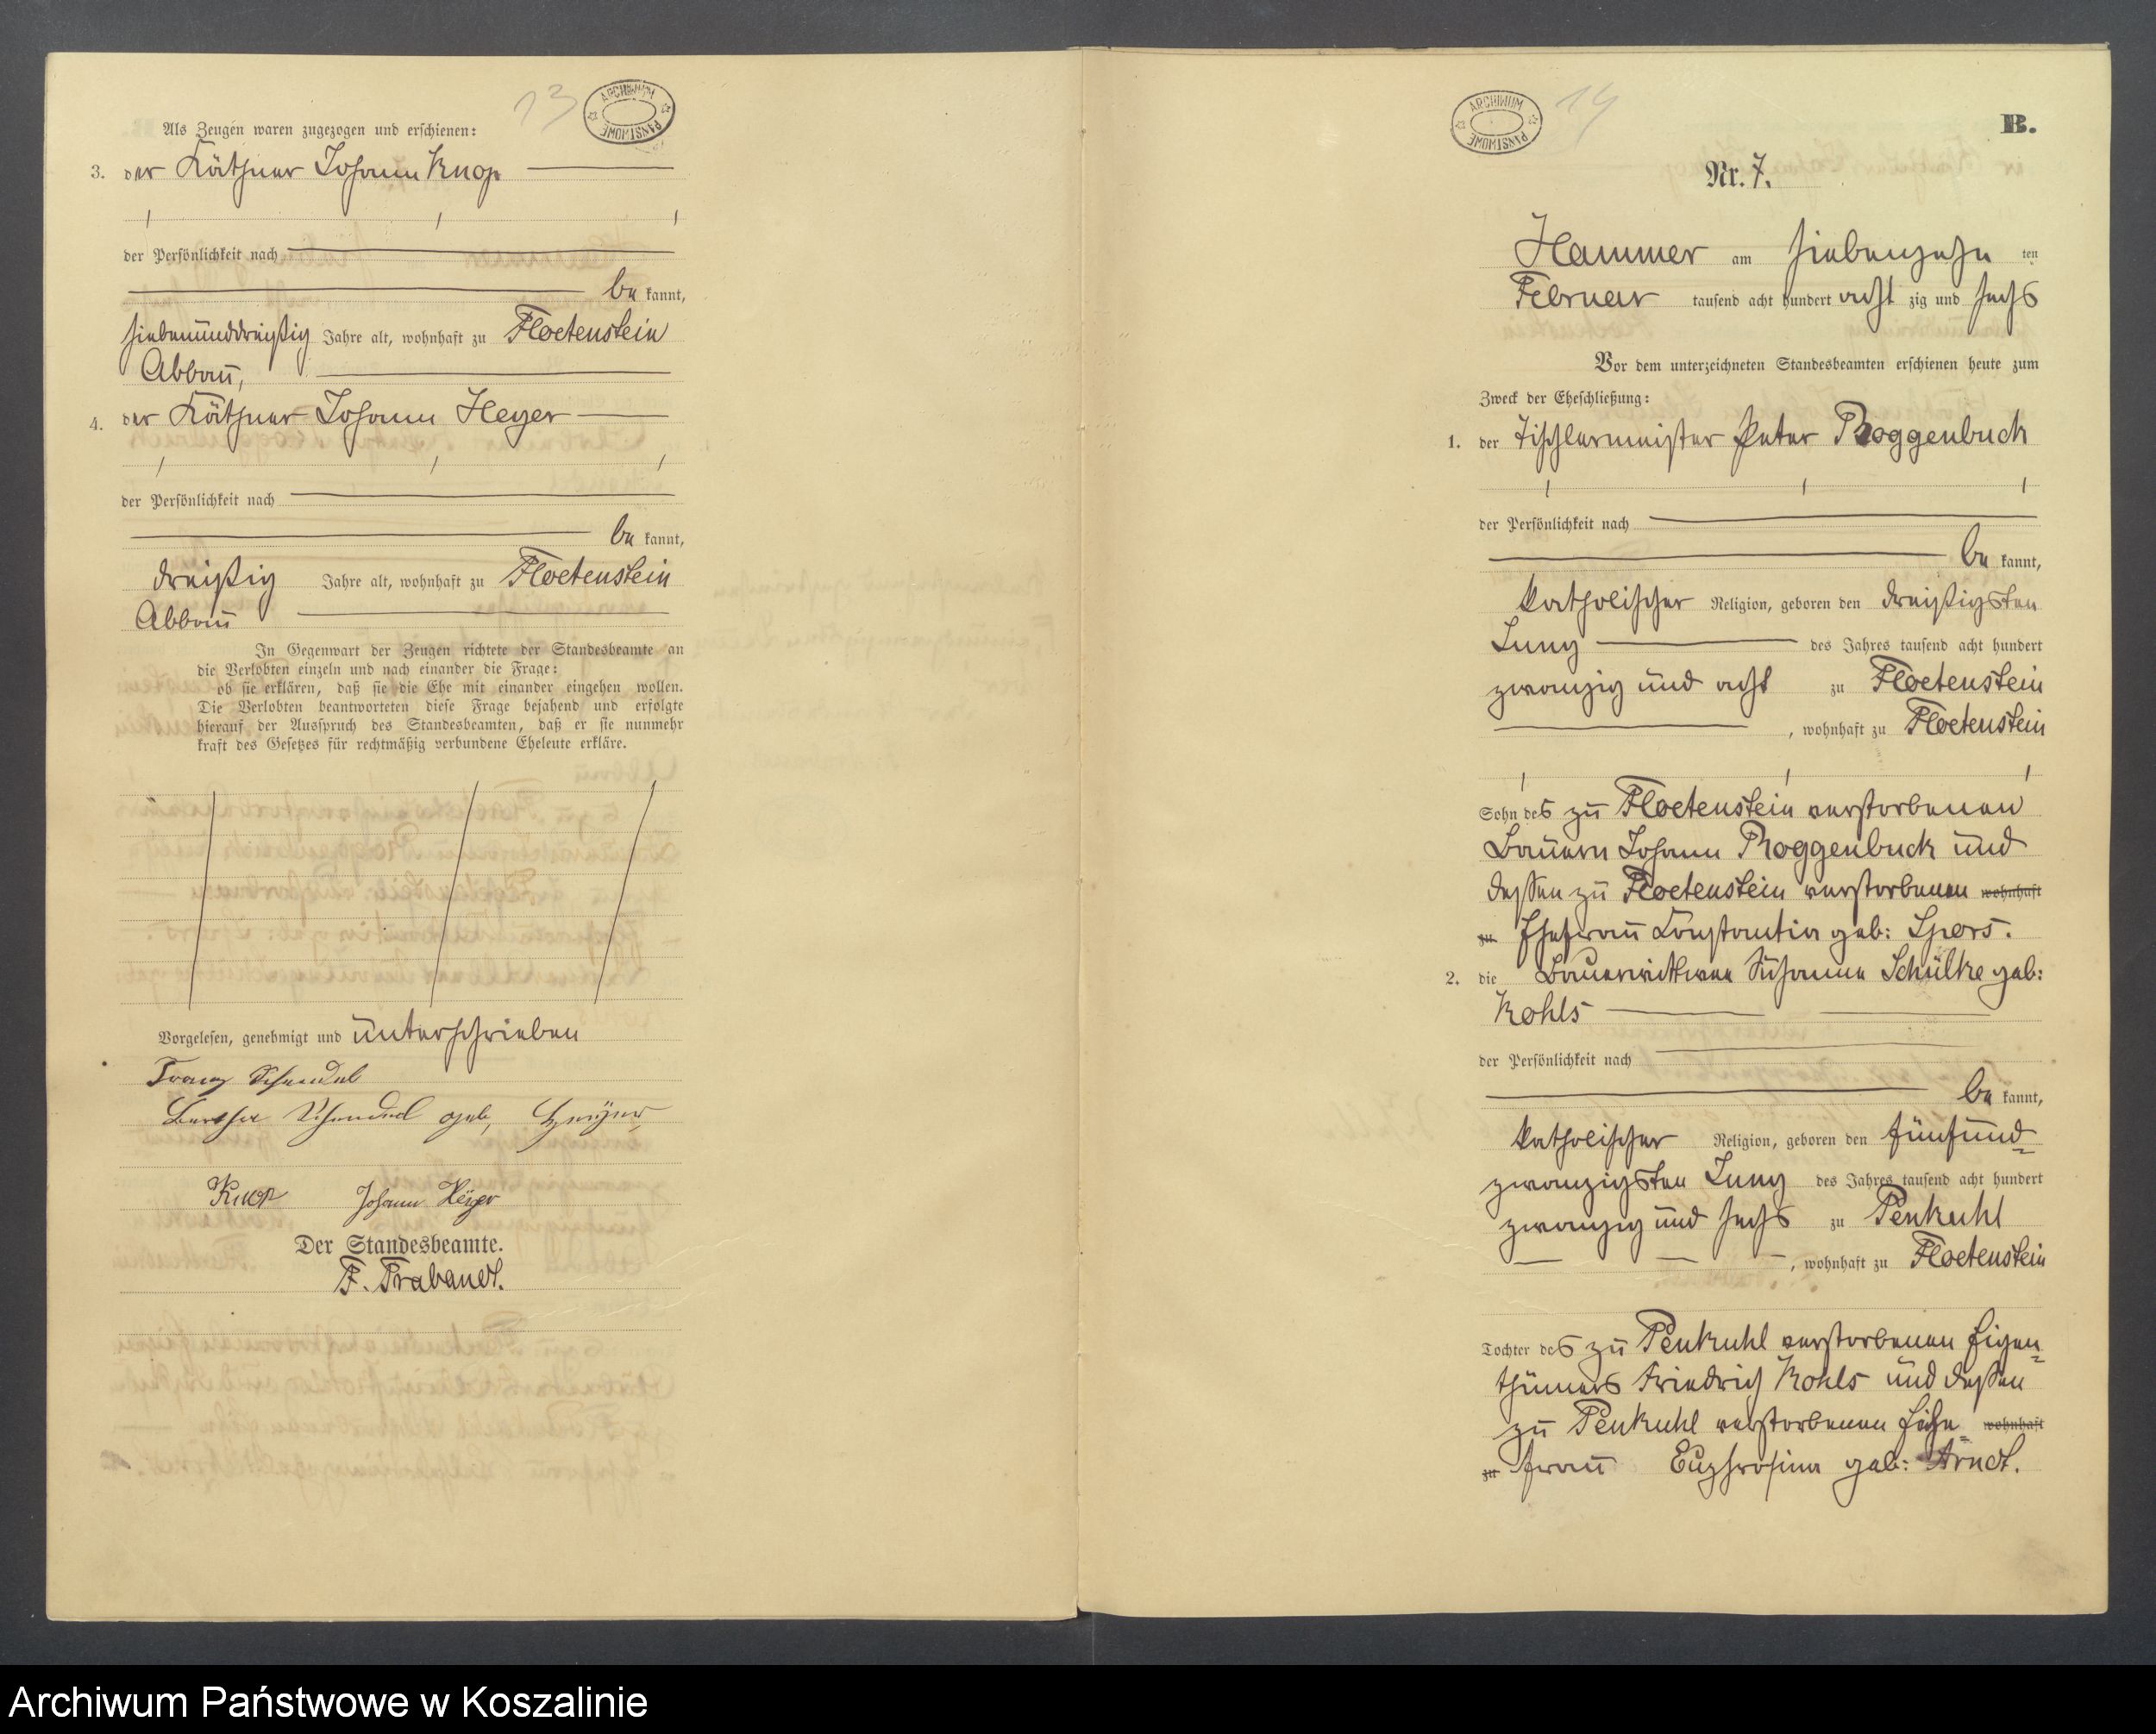 13
ARCHIWUM PAŃSTWOWE
Als Zeugen waren zugezogen und erschienen:
3. der Käthner Johann Knop
der Persönlichkeit nach
be kannt,
siebenunddreißig Jahre alt, wohnhaft zu Floetenstein
Abbau,
4. der Käthner Johann Heyer
der Persönlichkeit nach
be kannt,
dreißig Jahre alt, wohnhaft zu Floetenstein
Abbau
In Gegenwart der Zeugen richtete der Standesbeamte an
die Verlobten einzeln und nach einander die Frage:
ob sie erklären, daß sie die Ehe mit einander eingehen wollen.
Die Verlobten beantworteten diese Frage bejahend und erfolgte
hierauf der Ausspruch des Standesbeamten, daß er sie nunmehr
kraft des Gesetzes für rechtmäßig verbundene Eheleute erkläre.
Vorgelesen, genehmigt und unterschrieben
Franz Schendel
Bertha Schendel geb, Heÿer
Knop Johann Heÿer
Der Standesbeamte.
F. Trabandt.
ARCHIWUM PAŃSTWOWE
14
B.
Nr. 7.
Hammer am siebenzehn ten
Februar tausend acht hundert acht zig und sechs
Vor dem unterzeichneten Standesbeamten erschienen heute zum
Zweck der Eheschließung:
1. der Tischlermeister Peter Roggenbuck
der Persönlichkeit nach
be kannt,
katholischer Religion, geboren den dreißigsten
Juny des Jahres tausend acht hundert
zwanzig und acht zu Floetenstein
, wohnhaft zu Floetenstein
Sohn des zu Floetenstein verstorbenen
Bauern Johann Roggenbuck und
dessen zu Floetenstein verstorbenen wohnhaft
zu Ehefrau Constantia geb: Spors.
2. die Bauerwittwe Susanna Schülke geb:
Kohls
der Persönlichkeit nach
be kannt,
katholischer Religion, geboren den fünfund=
zwanzigsten Juny des Jahres tausend acht hundert
zwanzig und sechs zu Penkuhl
, wohnhaft zu Floetenstein
Tochter des zu Penkuhl verstorbenen Eigen=
thümers Friedrich Kohls und dessen
zu Penkuhl verstorbenen Ehe= wohnhaft
zu frau Euphrosina geb: Arndt.
Archiwum Państwowe w Koszalinie